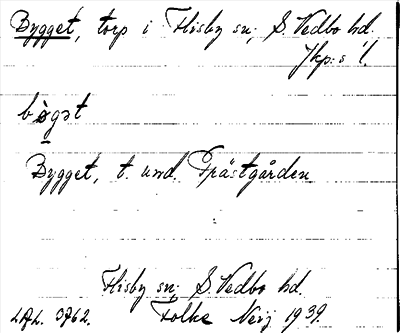 Bygget, torp i Flisby sn, S. Vedbo hd.
Jkp:s l.
bøgət
Bygget, t. und. Prästgården
Flisby sn, S. Vedbo hd.
3762. Folke 1939.